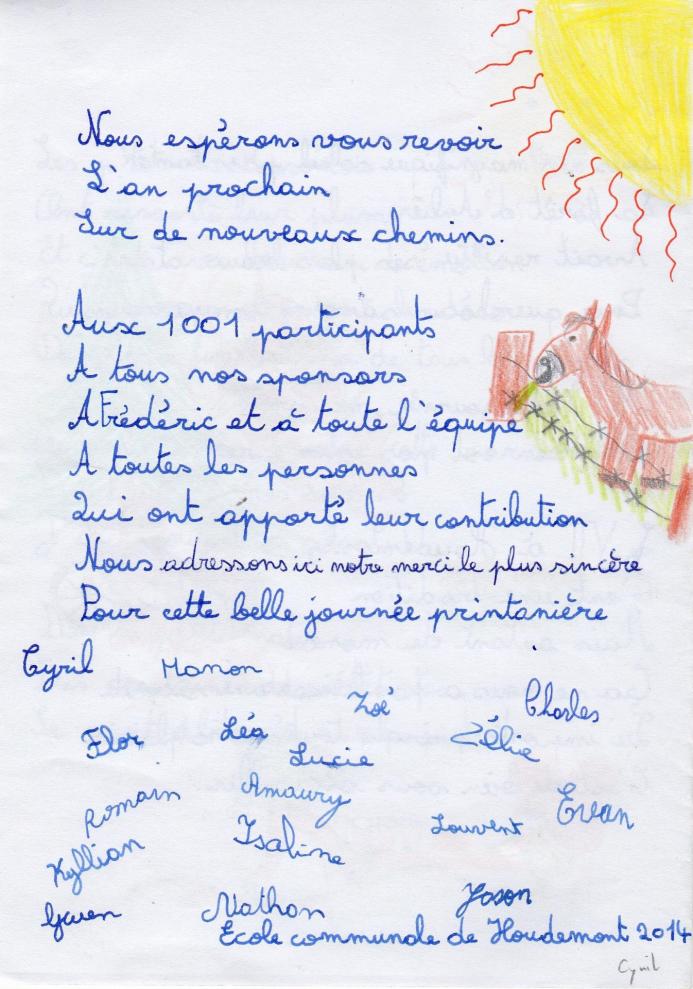 Nous espérons vous revoir
L'an prochain
Sur de nouveaux chemins.
Aux 1001 participants
A tous nos sponsors
A Frédéric et à toute l'équipe
A toutes les personnes
Qui ont apporté leur contribution
Nous adressons ici notre merci le plus sincère
Pour cette belle journée printanière
Cyril Manon
Zoé Charles
Flor Léa Lucie Célie
Romain Amaury
Louvent Evan
Kyllian Isaline
Gwen Nathan Jason
Ecole communale de Houdemont 2014
Cyril